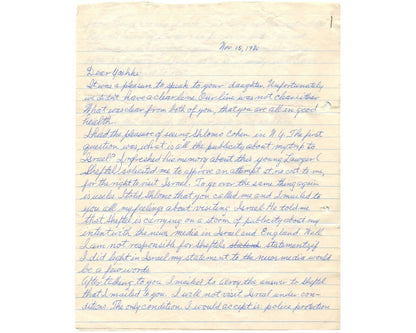 1
Nov 15, 1971
Dear Yoshke
It was a pleasure to speak to your daughter. Unfortunately
we didn't have a clear line. Our line was not clear either
What was clear from both of you, that you are all in good
health.
I had the pleasure of seeing Shlomo Cohen in N.Y. The first
question was, what is all the publicity about my trip to
Israel? I refreshed his memory about this young Lawyer
Sheftel solicited me to approve an attempt at no cost to me,
for the right to visit Israel. To go over the same thing again
is useless. I told Shlomo that you called me and I mailed to
you all my feelings about visiting Israel. He told me
that Sheftel is carrying on a storm of publicity about my
intent with the news media in Israel and England. Well
I am not responsible for Sheftels statements, if
I did light in Israel my statement to the news media would
be a few words.
After talking to you I mailed to Leroy the answer to Sheftel
that I mailed to you. I will not visit Israel under con-
ditions. The only condition I would accept is: police protection